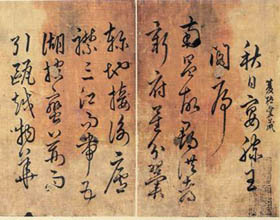 秋日宴滕王
閣序
南昌故郡洪都
新府星分翼
軫地接衡廬
襟三江而帶五
湖控蠻荊而
引甌越物華